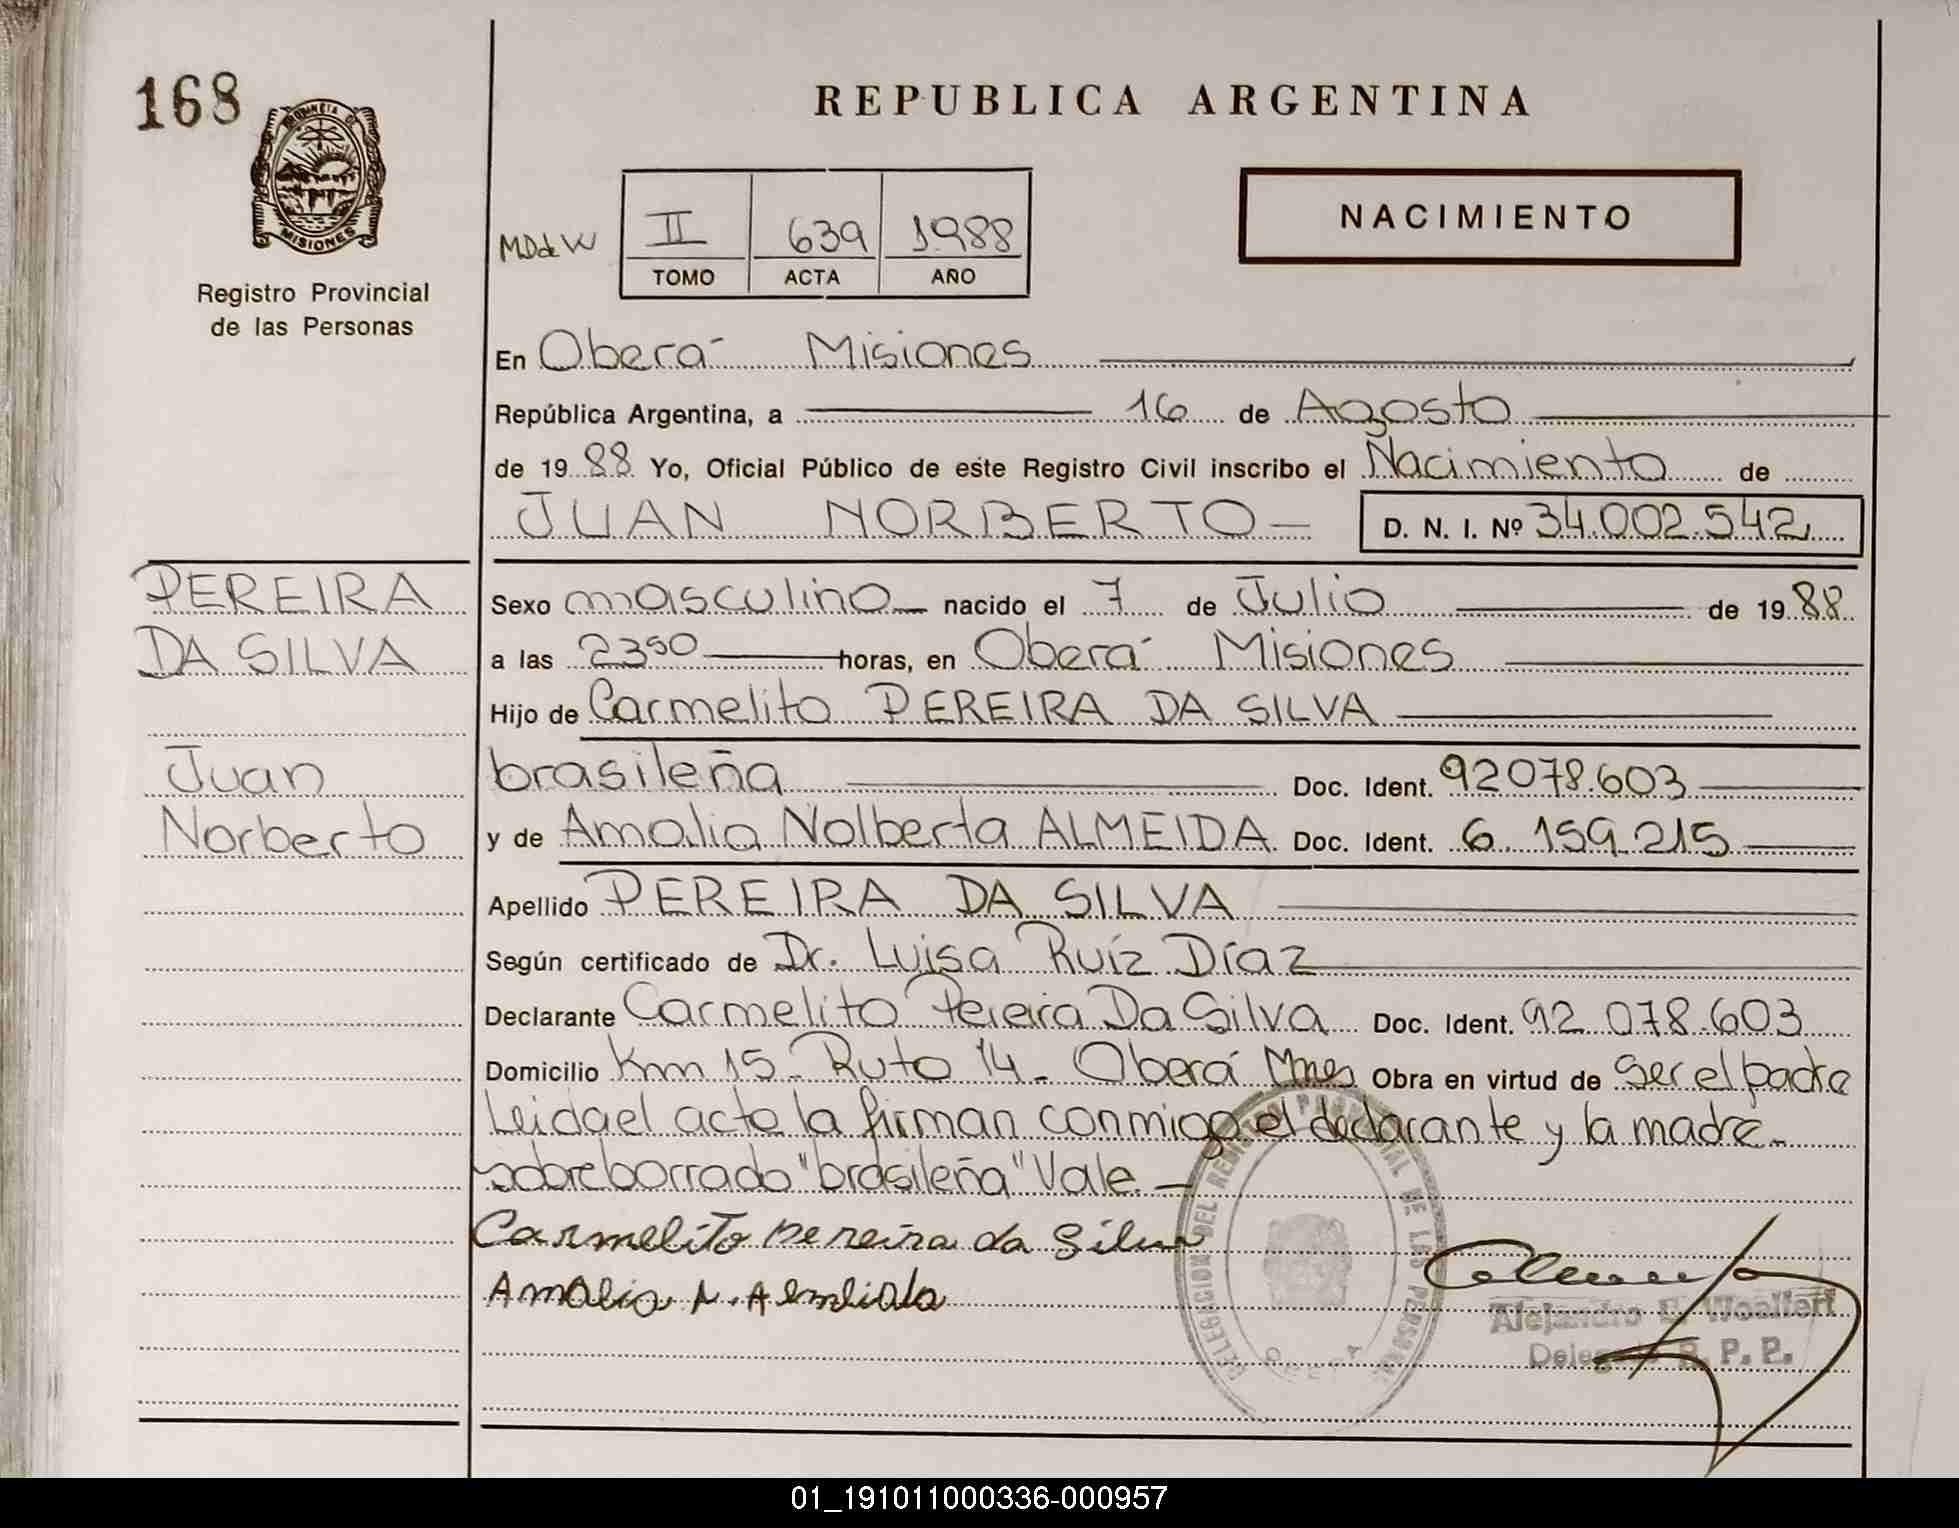 168
PROVINCIA DE
MISIONES
Registro Provincial
de las Personas
REPUBLICA ARGENTINA
NACIMIENTO
MDdeW
II 639 1988
TOMO ACTA AÑO
En Oberá Misiones
República Argentina, a 16 de Agosto
de 1988 Yo, Oficial Público de este Registro Civil inscribo el Nacimiento de
JUAN NORBERTO D. N. I. Nº 34.002.542
PEREIRA
DA SILVA
Juan
Norberto
Sexo masculino nacido el 7 de Julio de 1988
a las 23 50 horas, en Oberá Misiones
Hijo de Carmelito PEREIRA DA SILVA
brasileña Doc. Ident. 92078.603
y de Amalia Nolberta ALMEIDA Doc. Ident. 6.159.215
Apellido PEREIRA DA SILVA
Según certificado de Dr. Luisa Ruíz Díaz
Declarante Carmelito Pereira Da Silva Doc. Ident. 92.078.603
Domicilio Km 15 - Ruta 14 - Oberá Mnes Obra en virtud de ser el padre
Leida el acta la firman conmigo el declarante y la madre.
sobreborrado "brasileña" Vale. -
Carmelito Pereira da Silva
Amalia N. Almeida
DELEGACION DEL REGISTRO PROVINCIAL DE LAS PERSONAS
OBERA
Alejandro E. Woelfert
Delegado R. P. P.
01_191011000336-000957